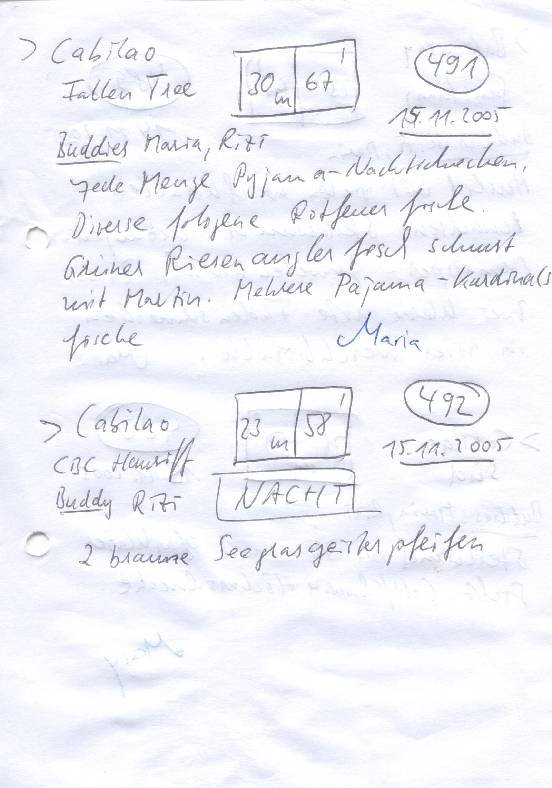 > Cabilao
30 m 67'
491
Fallen Tree
15.11.2005
Buddies Maria, Rizi
Jede Menge Pyjama-Nachtschnecken.
Diverse folgene Rotfeuerfische.
Grüner Riesenanglerfisch schmust
mit Martin. Mehrere Pajama-Kardinals
fische
Maria
> Cabilao
23 m 58'
492
CBC Hausriff
15.11.2005
Buddy Rizi
NACHT
2 braune Seegrasgeisterpfeifen